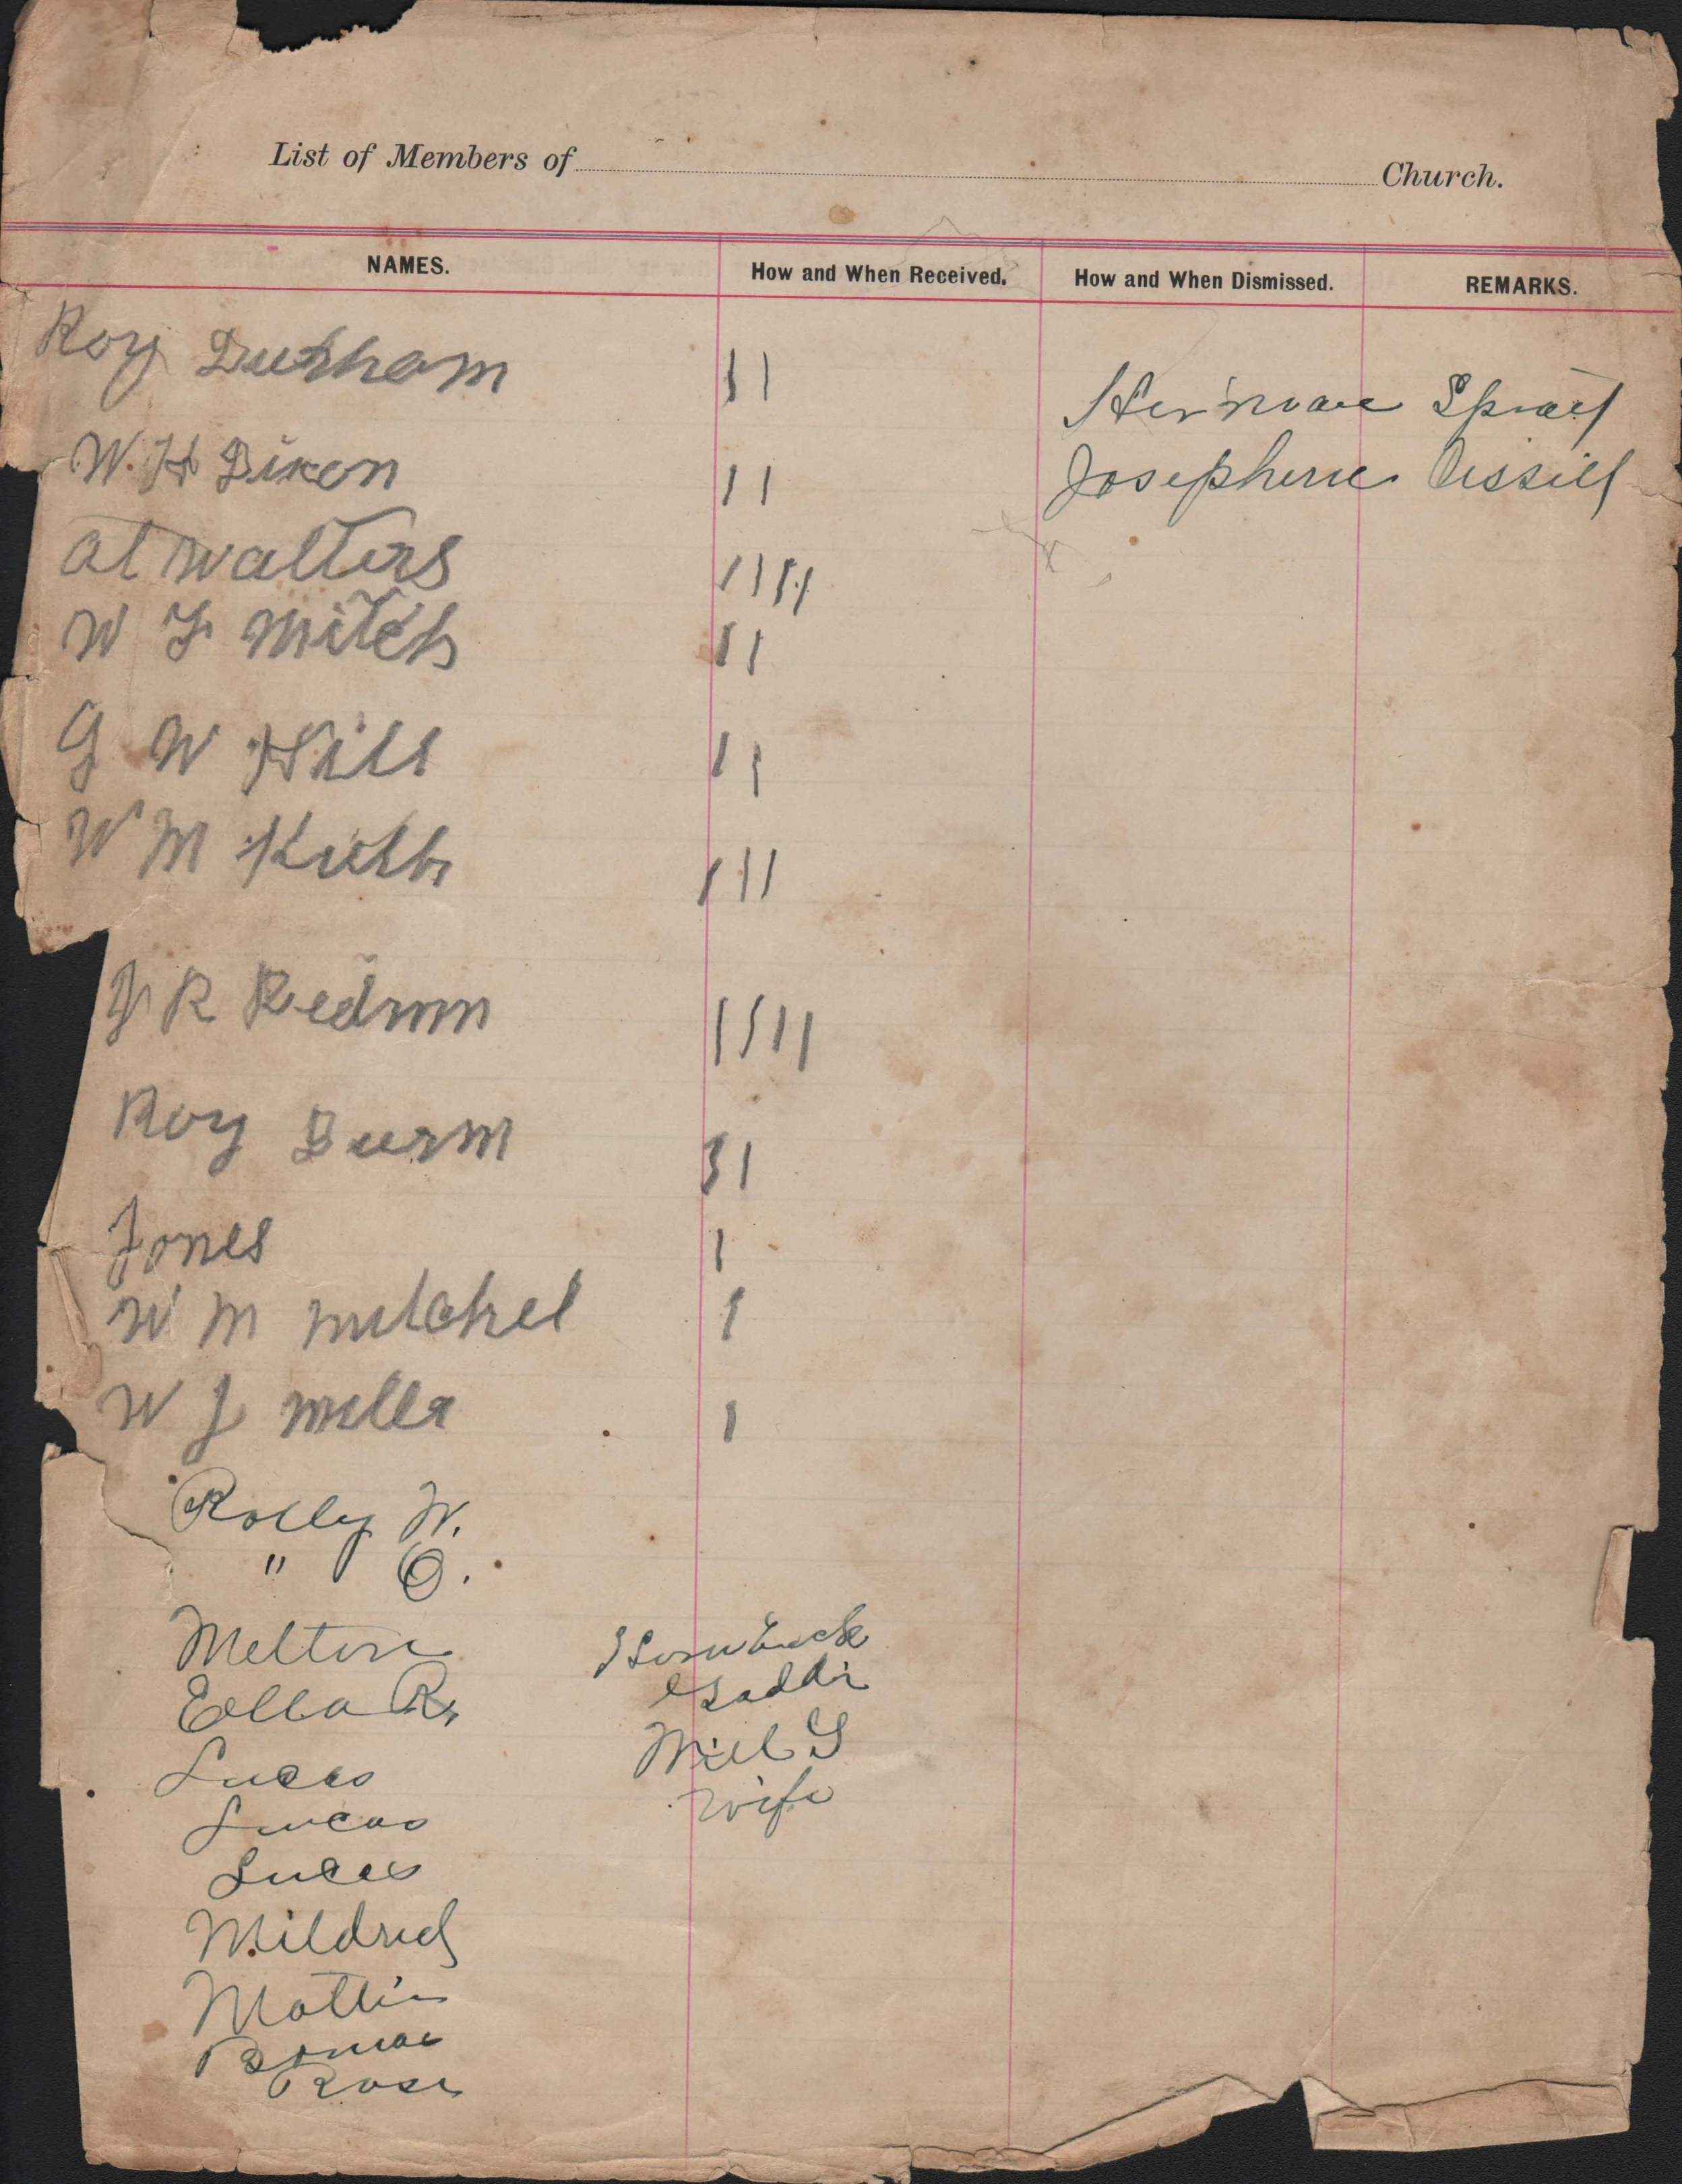 List of Members of Church.
NAMES. How and When Received. How and When Dismissed. REMARKS.
Roy Durham 11
Herman
W. H Dixon 11
Josephine
al walters 1111
W F Mitch 11
G W Hill 11
W M 111
J R Redmn 1111
Roy Durm 11
Jones 1
W M mitchel 1
W J 1
Rolly W.
" O.
Melton Hornback
Ella R.
Lucas Will G
Lucas wife
Lucas
Mildred
Mattie
Rosa